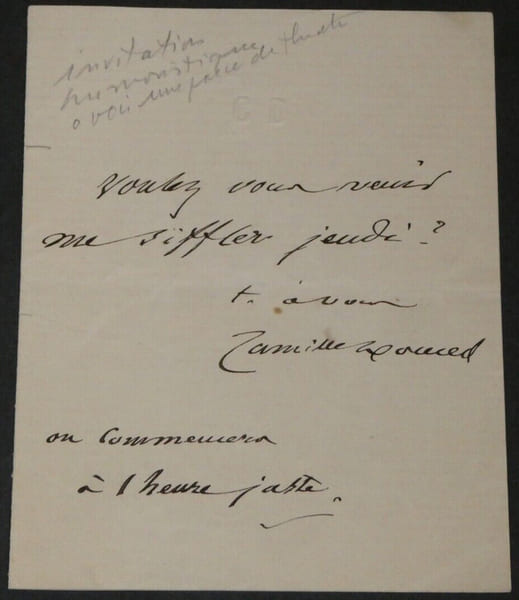 invitation
humoristique
a voir une pièce de theatre
C D
Voulez vous venir
me siffler jeudi ?
t. à vous
Camille Doucet
on commencera
à 1 heure juste.